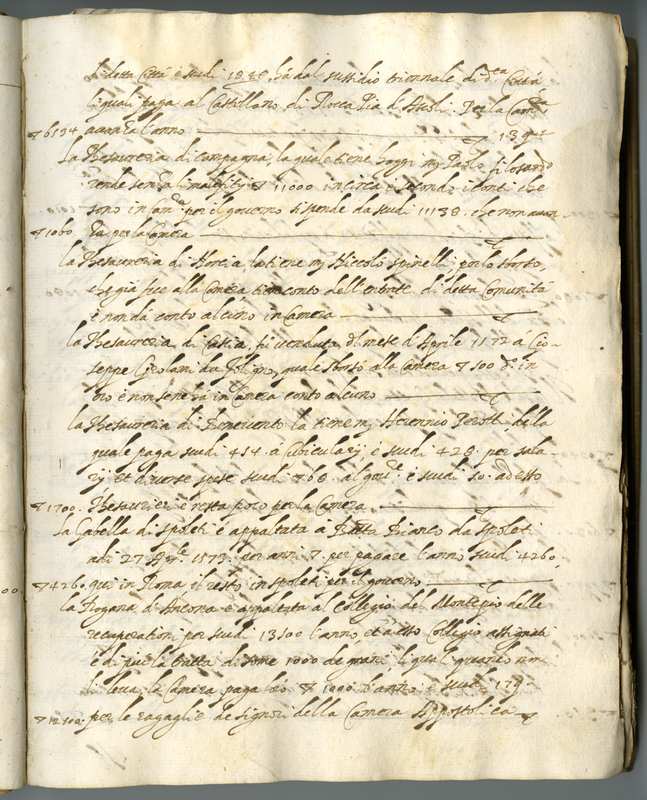 di detta Città è scudi 1848. hà dal sussidio triennale di d.ta Città
li quali paga al Castillano di Rocca Pia d'Ascoli Per la Cam.ra
∇ 6134 avanza l'anno
La Thesaureria di Campagna, la quale tiene hoggi m. Paolo filosardo
rende senza li malefitij ∇ 11000 incirca e secondo i conti che
sono in Cam.a per il governo si spende da scudi 11138. che non avan
∇ 1060 za per la Camera
la Thesaureria di Norcia, la tiene m. Niccolò spinelli, per lo sborso,
che già fece alla Camera tien conto dell'entrate di detta Comunità
e non dà conto alcuno in Camera
la Thesaureria di Cascia, fù venduta del mese d'Aprile 1572 à Gio-
seppe Girolami da foligno, quale sborsò alla Camera ∇ 500 d'oro in
oro e non se ne hà in Camera conto alcuno
la Thesaureria di Benevento la tiene m. Herennio Perotti della
quale paga scudi 454. à Cubicularij e scudi 428. per sala-
rij et diverse spese scudi 768. al gov.re e scudi 50. ad esso
∇ 1700. Thesauriere e resta poco per la Camera
La Gabella di spoleti è appaltata à Batta Bianco da spoleti
adi 27 per anni 7. per pagare l'anno scudi 4260.
∇ 4260. qui in Roma, il resto in spoleti per il governo
la Dogana d'Ancona è appaltata al Collegio del Montegio delle
recuperationi per scudi 13500 l'anno, et a esso Collegio assignati
e di più la tratta di some 1000 de grani li quali quando non
li leva, la Camera paga loro ∇ 1000 l'anno e scudi 179
∇ 12500. per le regaglie de signori della Camera Appostolica